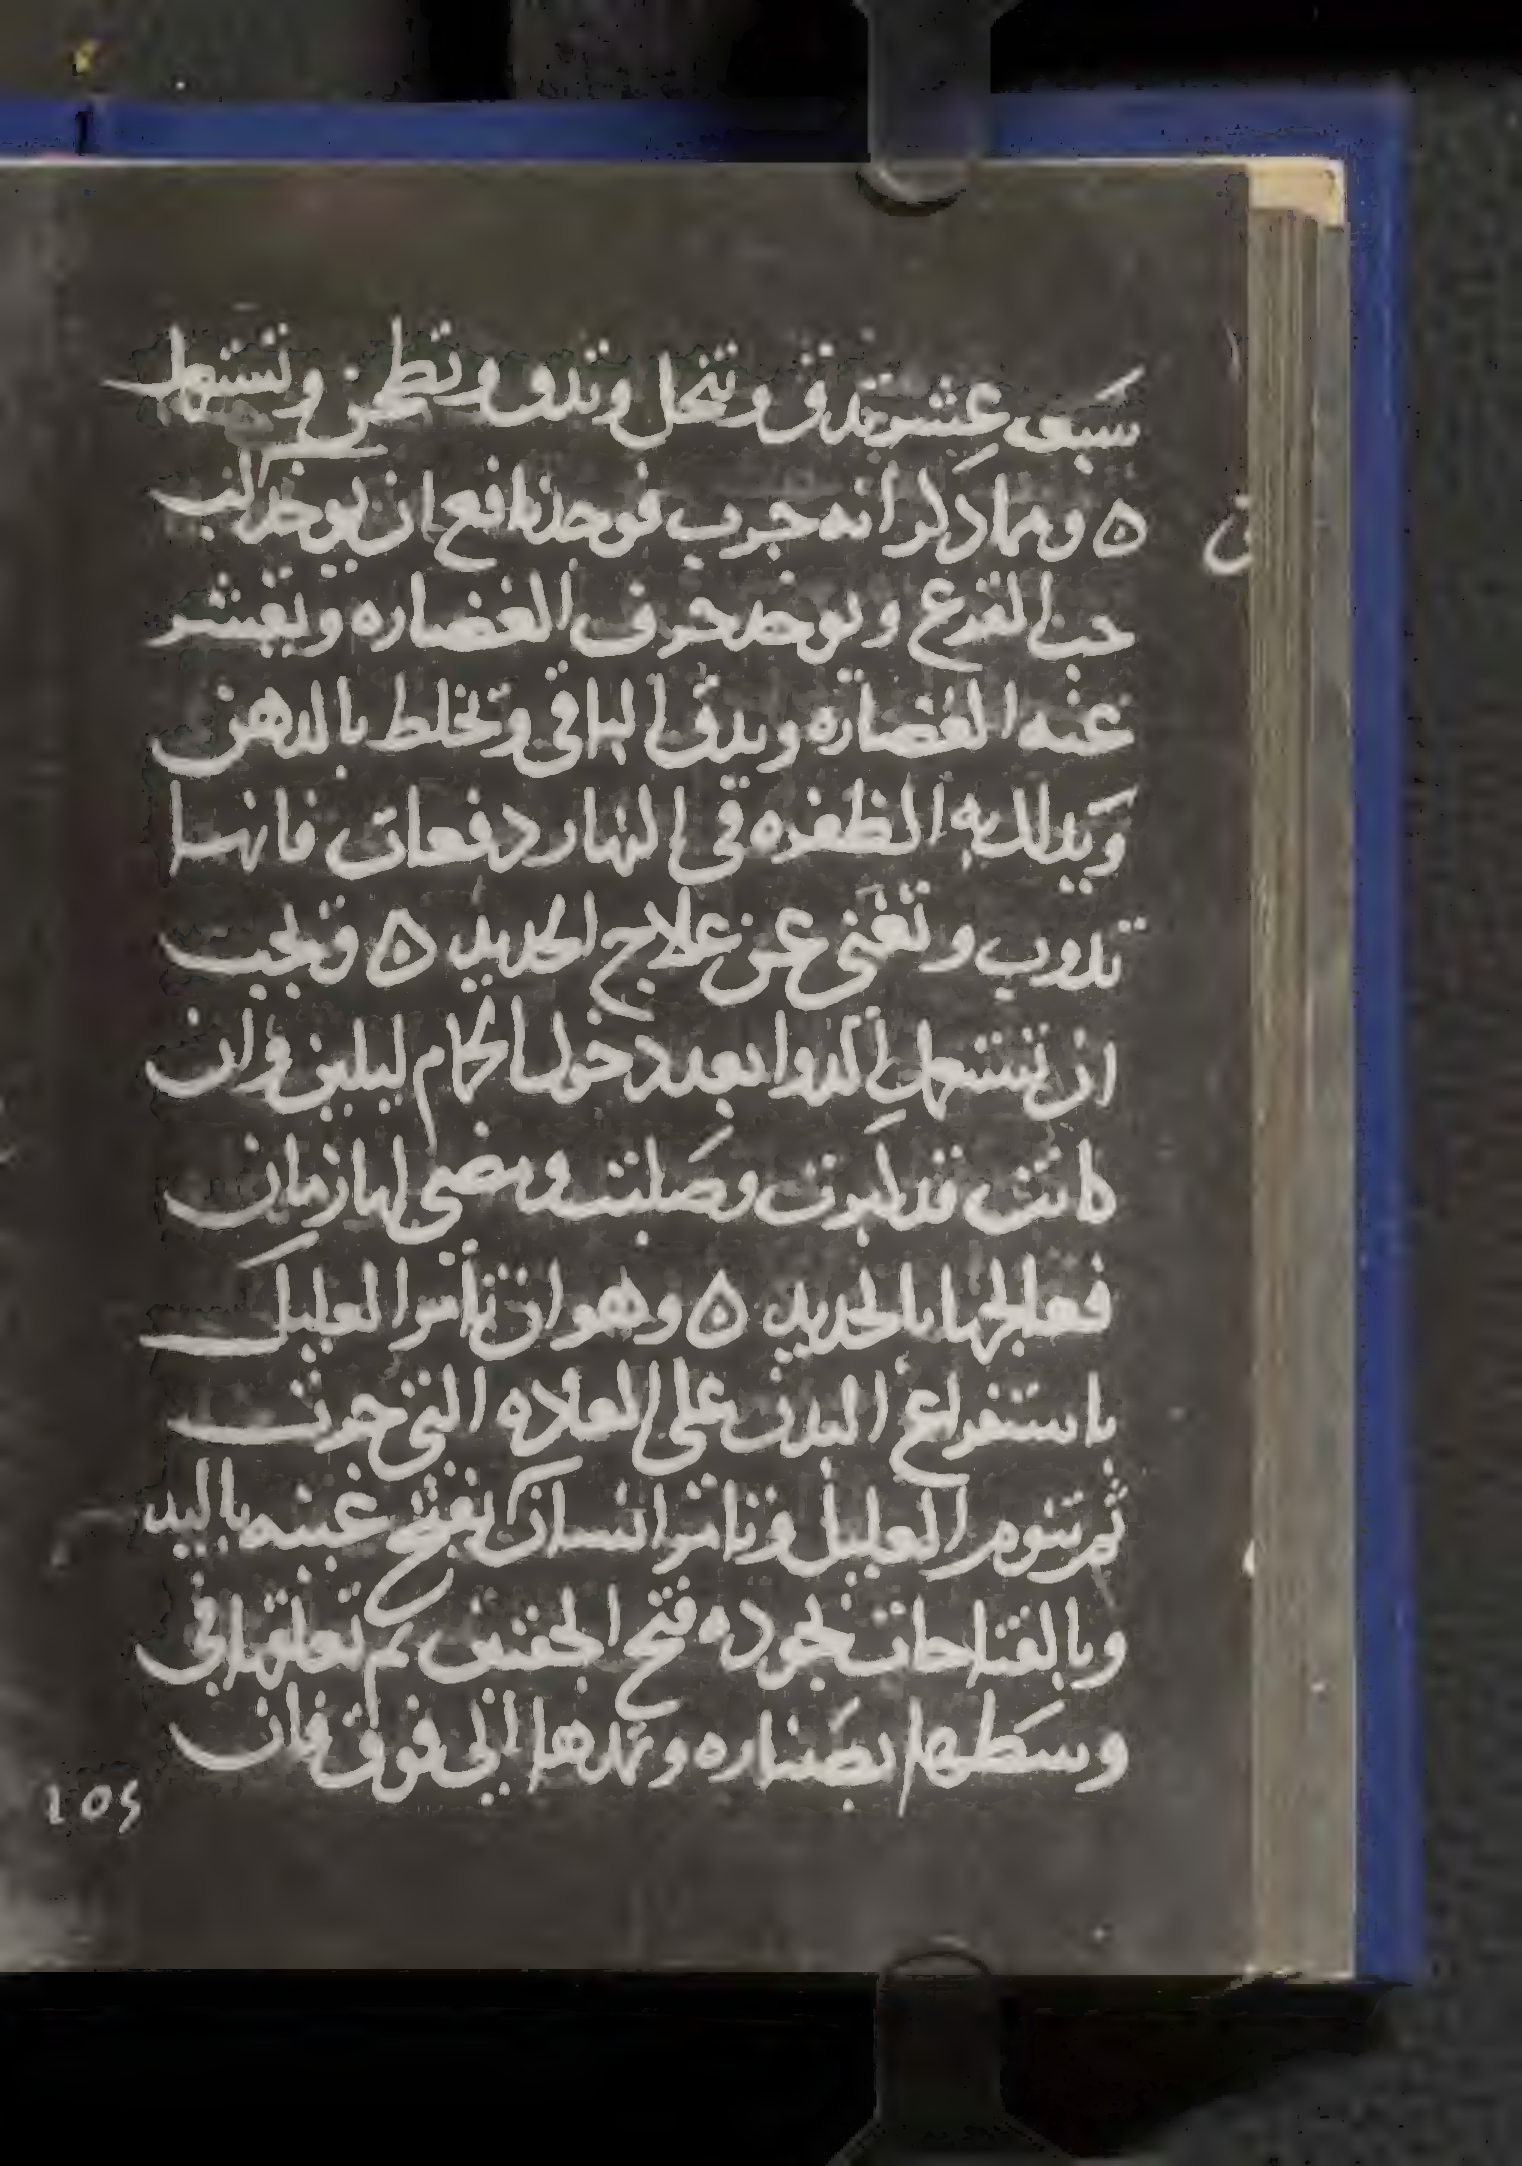 سبعه عشر تدق وتنخل وتدق وتطحن وتستعمل
ه ومما ذكر انه جرب فوجد نافع ان يوخذ لب
حب القرع ويوخذ خزف الغضاره ويقشر
عنه الغضاره ويدق الباقي ويخلط بالدهن
ويدلك به الظفره في النهار دفعات فانها
تدوب وتغني عن علاج الحديد ه ويجب
ان تستعمل الدوا بعد دخول الحمام ليلين وان
كانت قد كبرت وصلبت ومضى لها زمان
فعالجها بالحديد ه وهو ان تأمر العليل
باستفراغ البدن على العاده التي جرت
ثم تنوم العليل وتامر انسان يفتح عينه باليد
وبالفتاحات بجوده فتح الجفنين ثم تعلقها في
وسطها بصناره وتمدها الي فوق فان
105